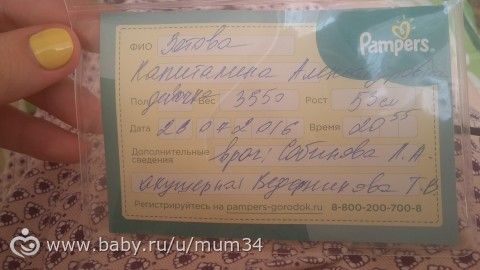 Pampers
ФИО Зотова
Капиталина Александровна
Пол девочка Вес 3550 Рост 53см
Дата 28 07 2016 Время 20 55
Дополнительные сведения врач: Л.А.
акушерка Т.В
Регистрируйтесь на pampers-gorodok.ru 8-800-200-700-8
www.baby.ru/u/mum34